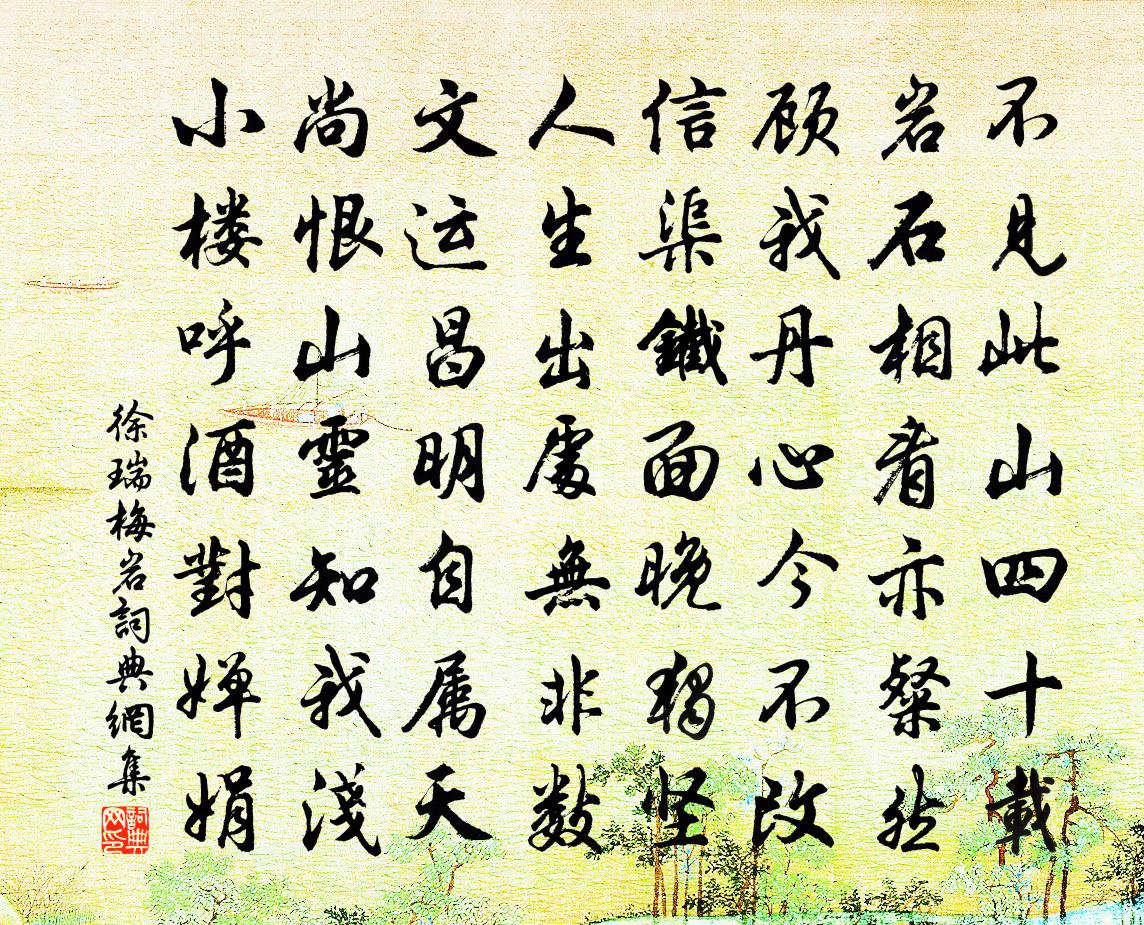 不见此山四十载
岩石相看亦粲然
顾我丹心今不改
信渠鐵面晚猶坚
人生出處無非数
文运昌明自属天
尚恨山靈知我淺
小楼呼酒對婵娟
徐瑞梅岩詞典網集
詞典网印